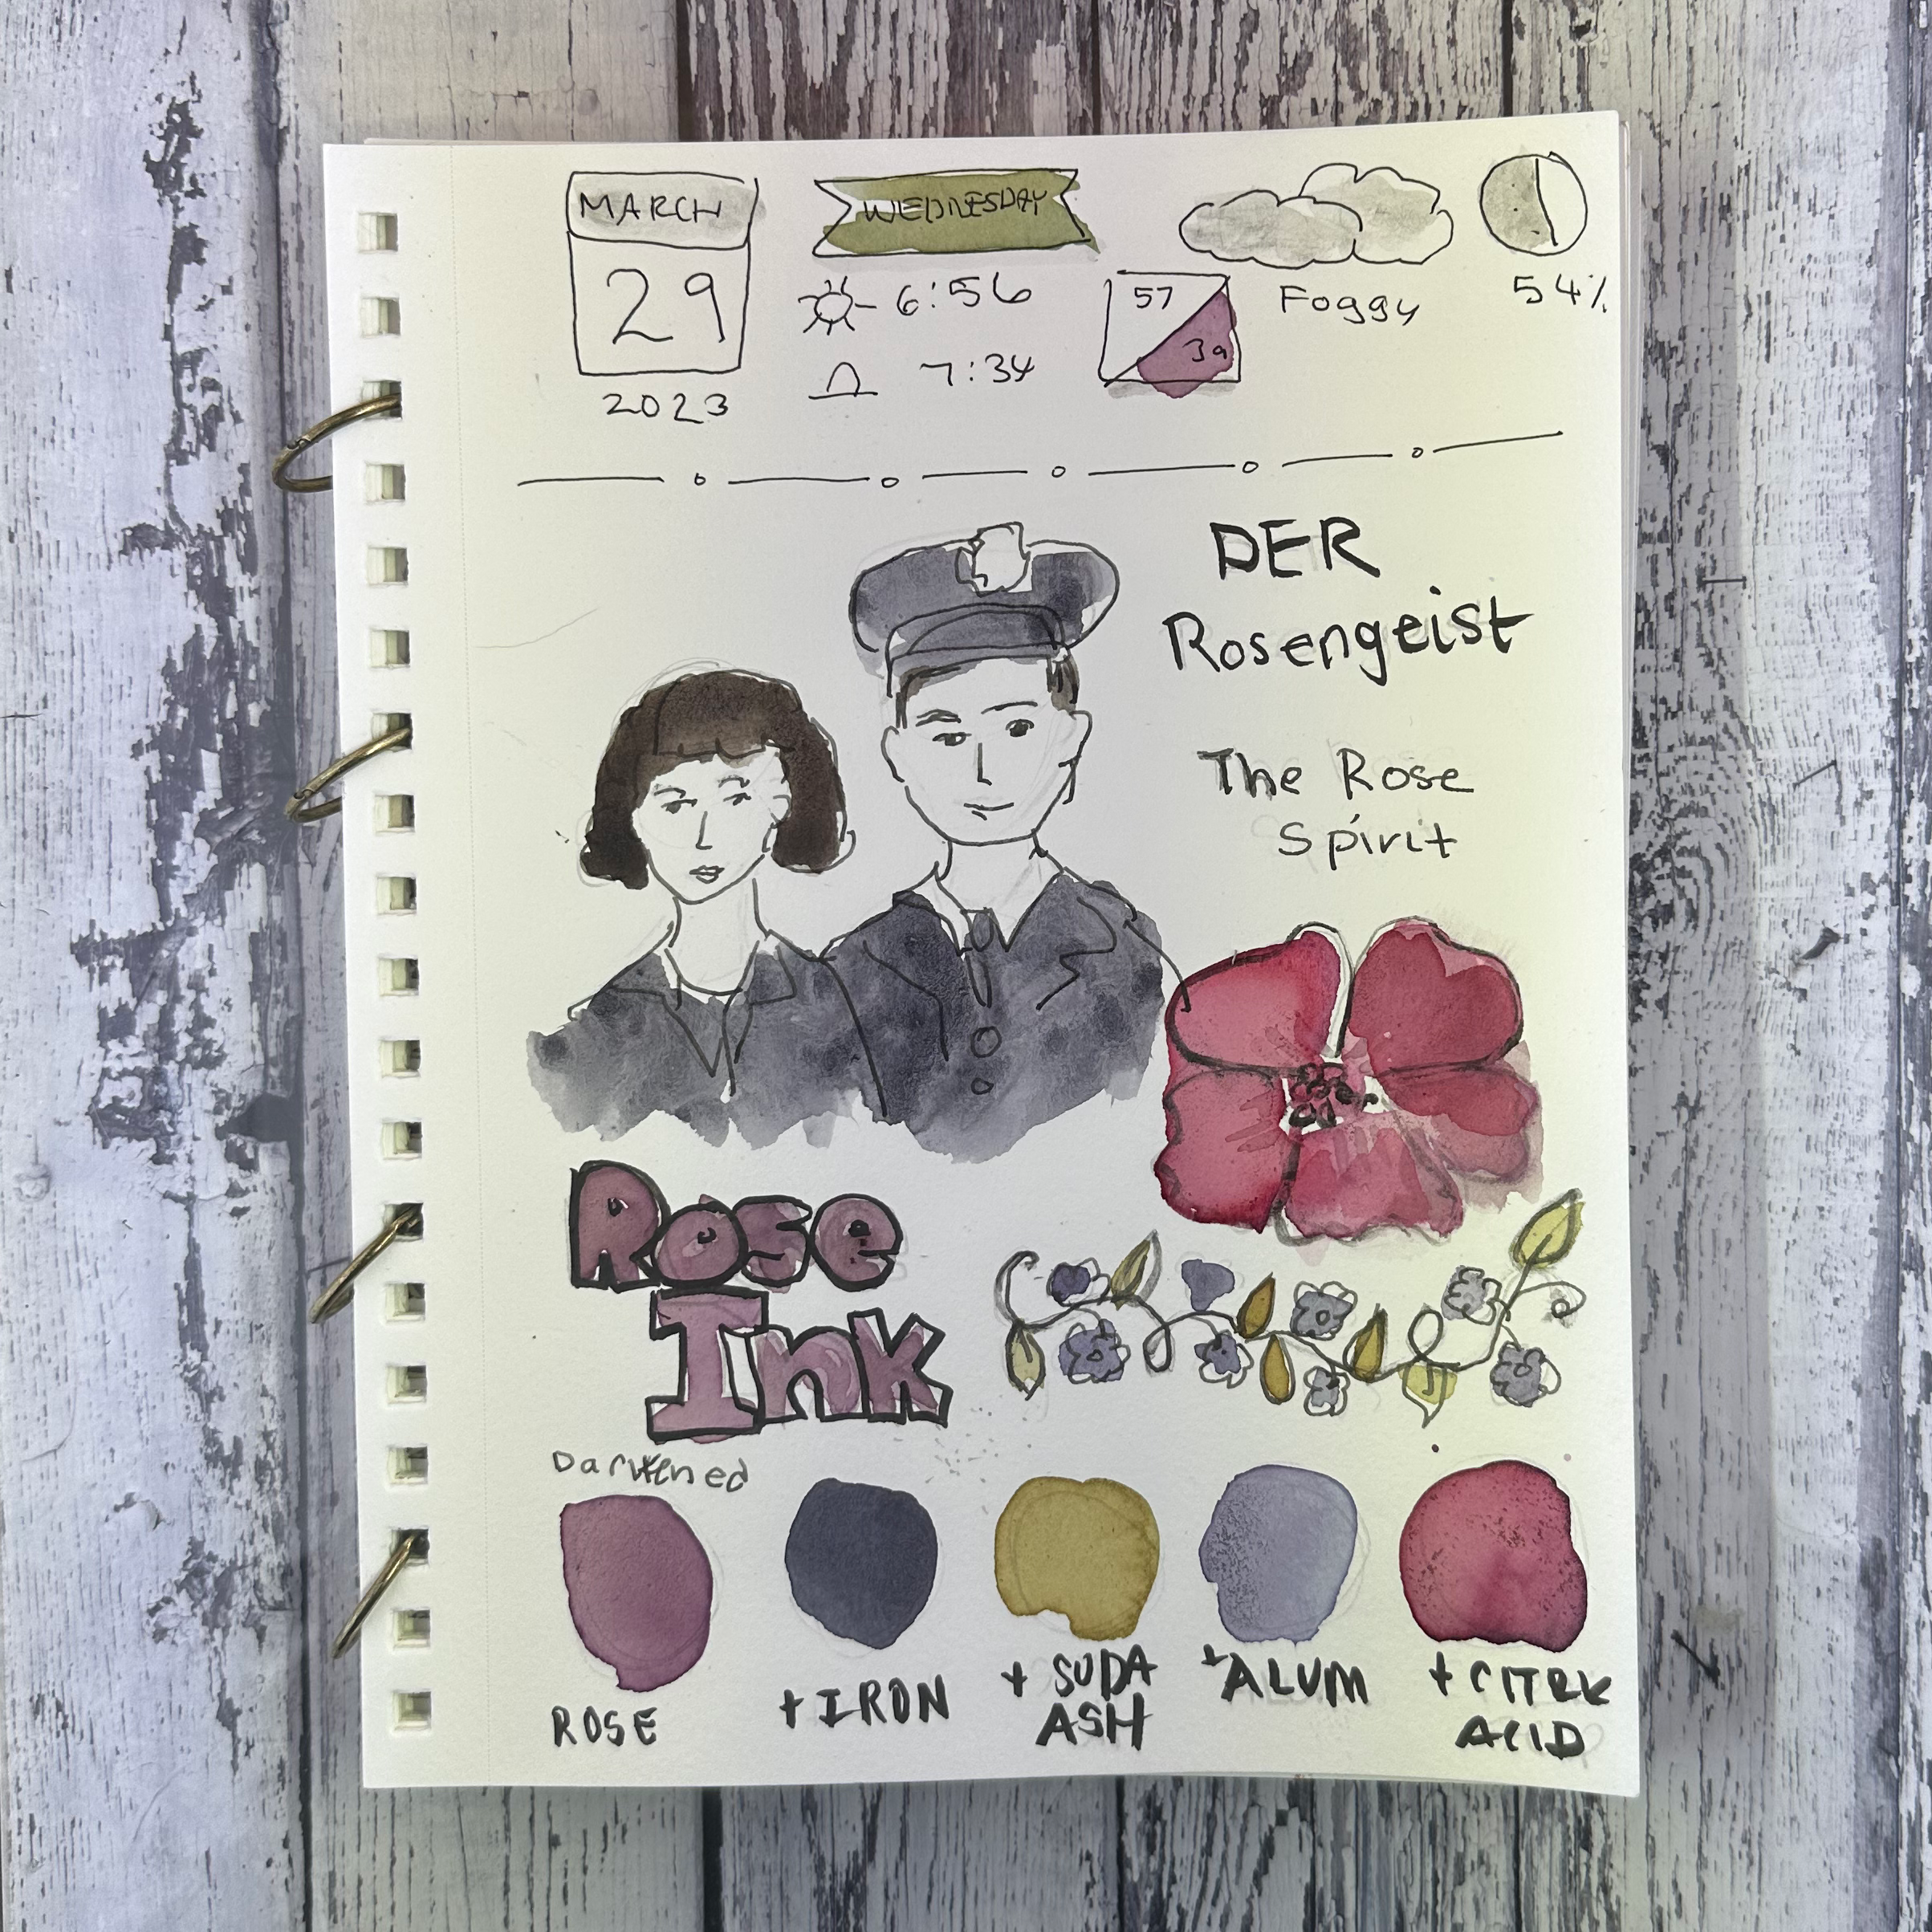 MARCH
29
2023
WEDNESDAY
6:56
7:34
57
39
Foggy
54%
DER
Rosengeist
The Rose
Spirit
Rose
Ink
Darkened
ROSE
+ IRON
+ SODA
ASH
+ ALUM
+ CITRIC
ACID